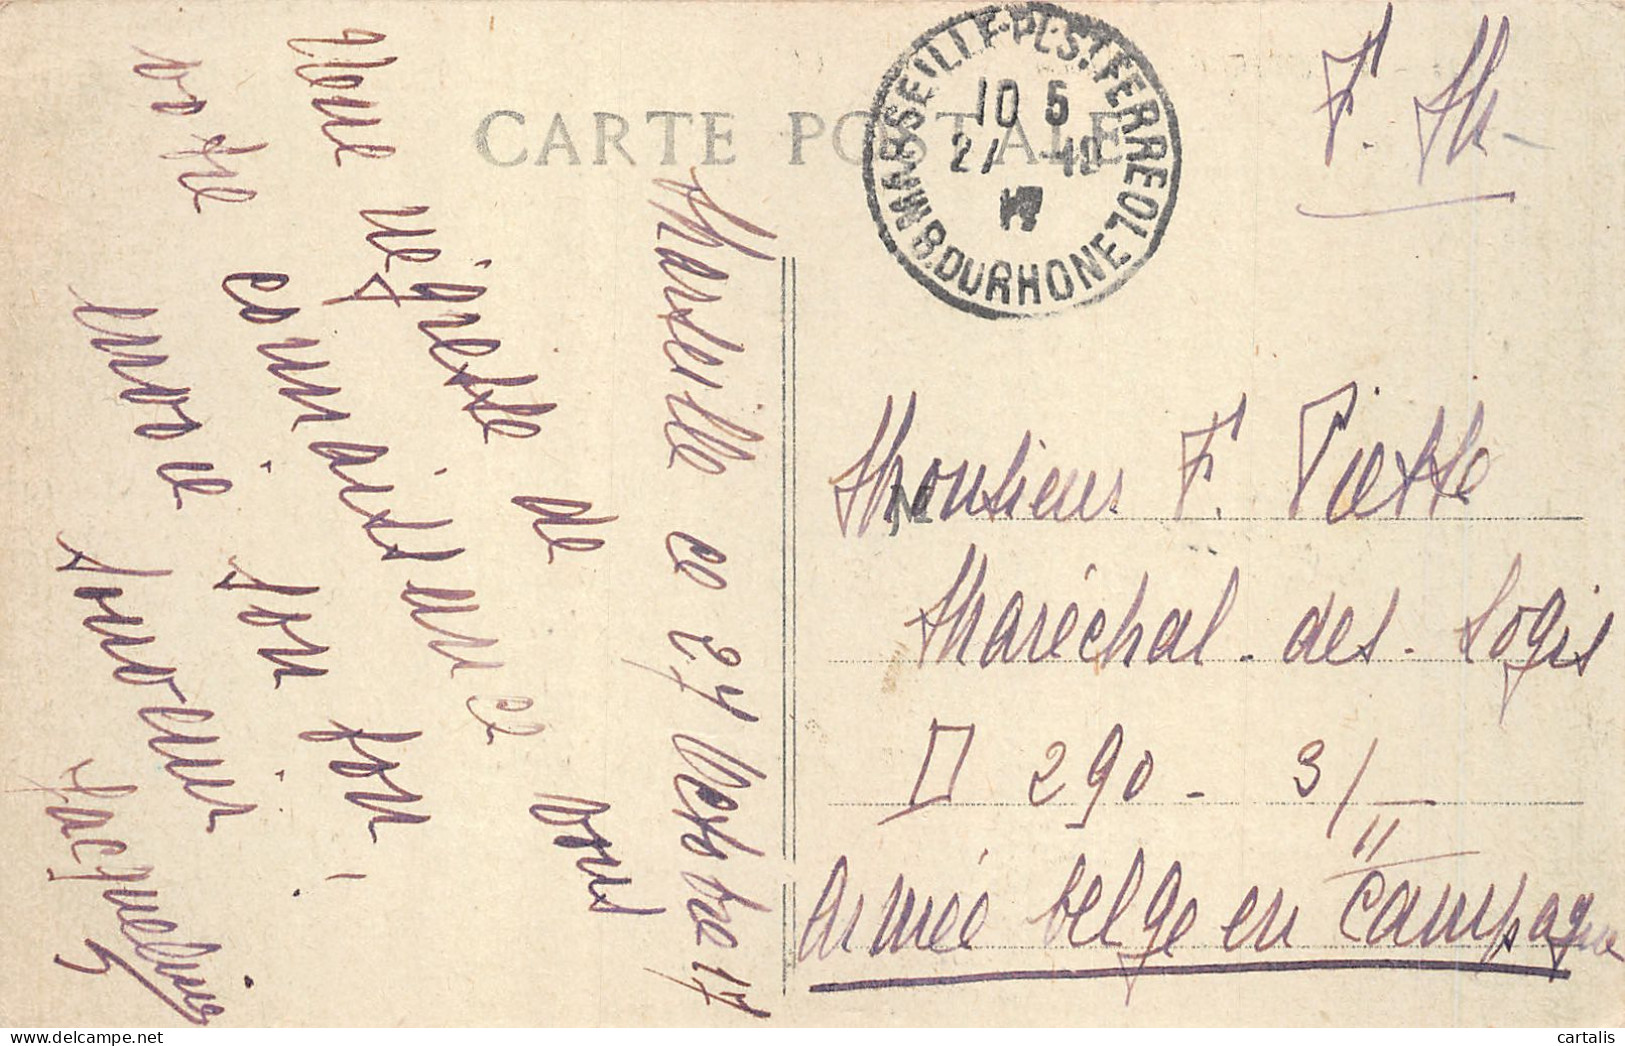 CARTE POSTALE
MARSEILLE-PL. ST FERREOL
10 5
27 -10
17
B. DU RHONE
F. M.
Marseille ce 27 Octobre 17
Une négrette de
votre connaissance vous
envoie son bon
souvenir
Jacqueline
Monsieur F. Piette
Maréchal-des-logis
D 290 - 3/
"
Armée belge en Campagne
cartalis